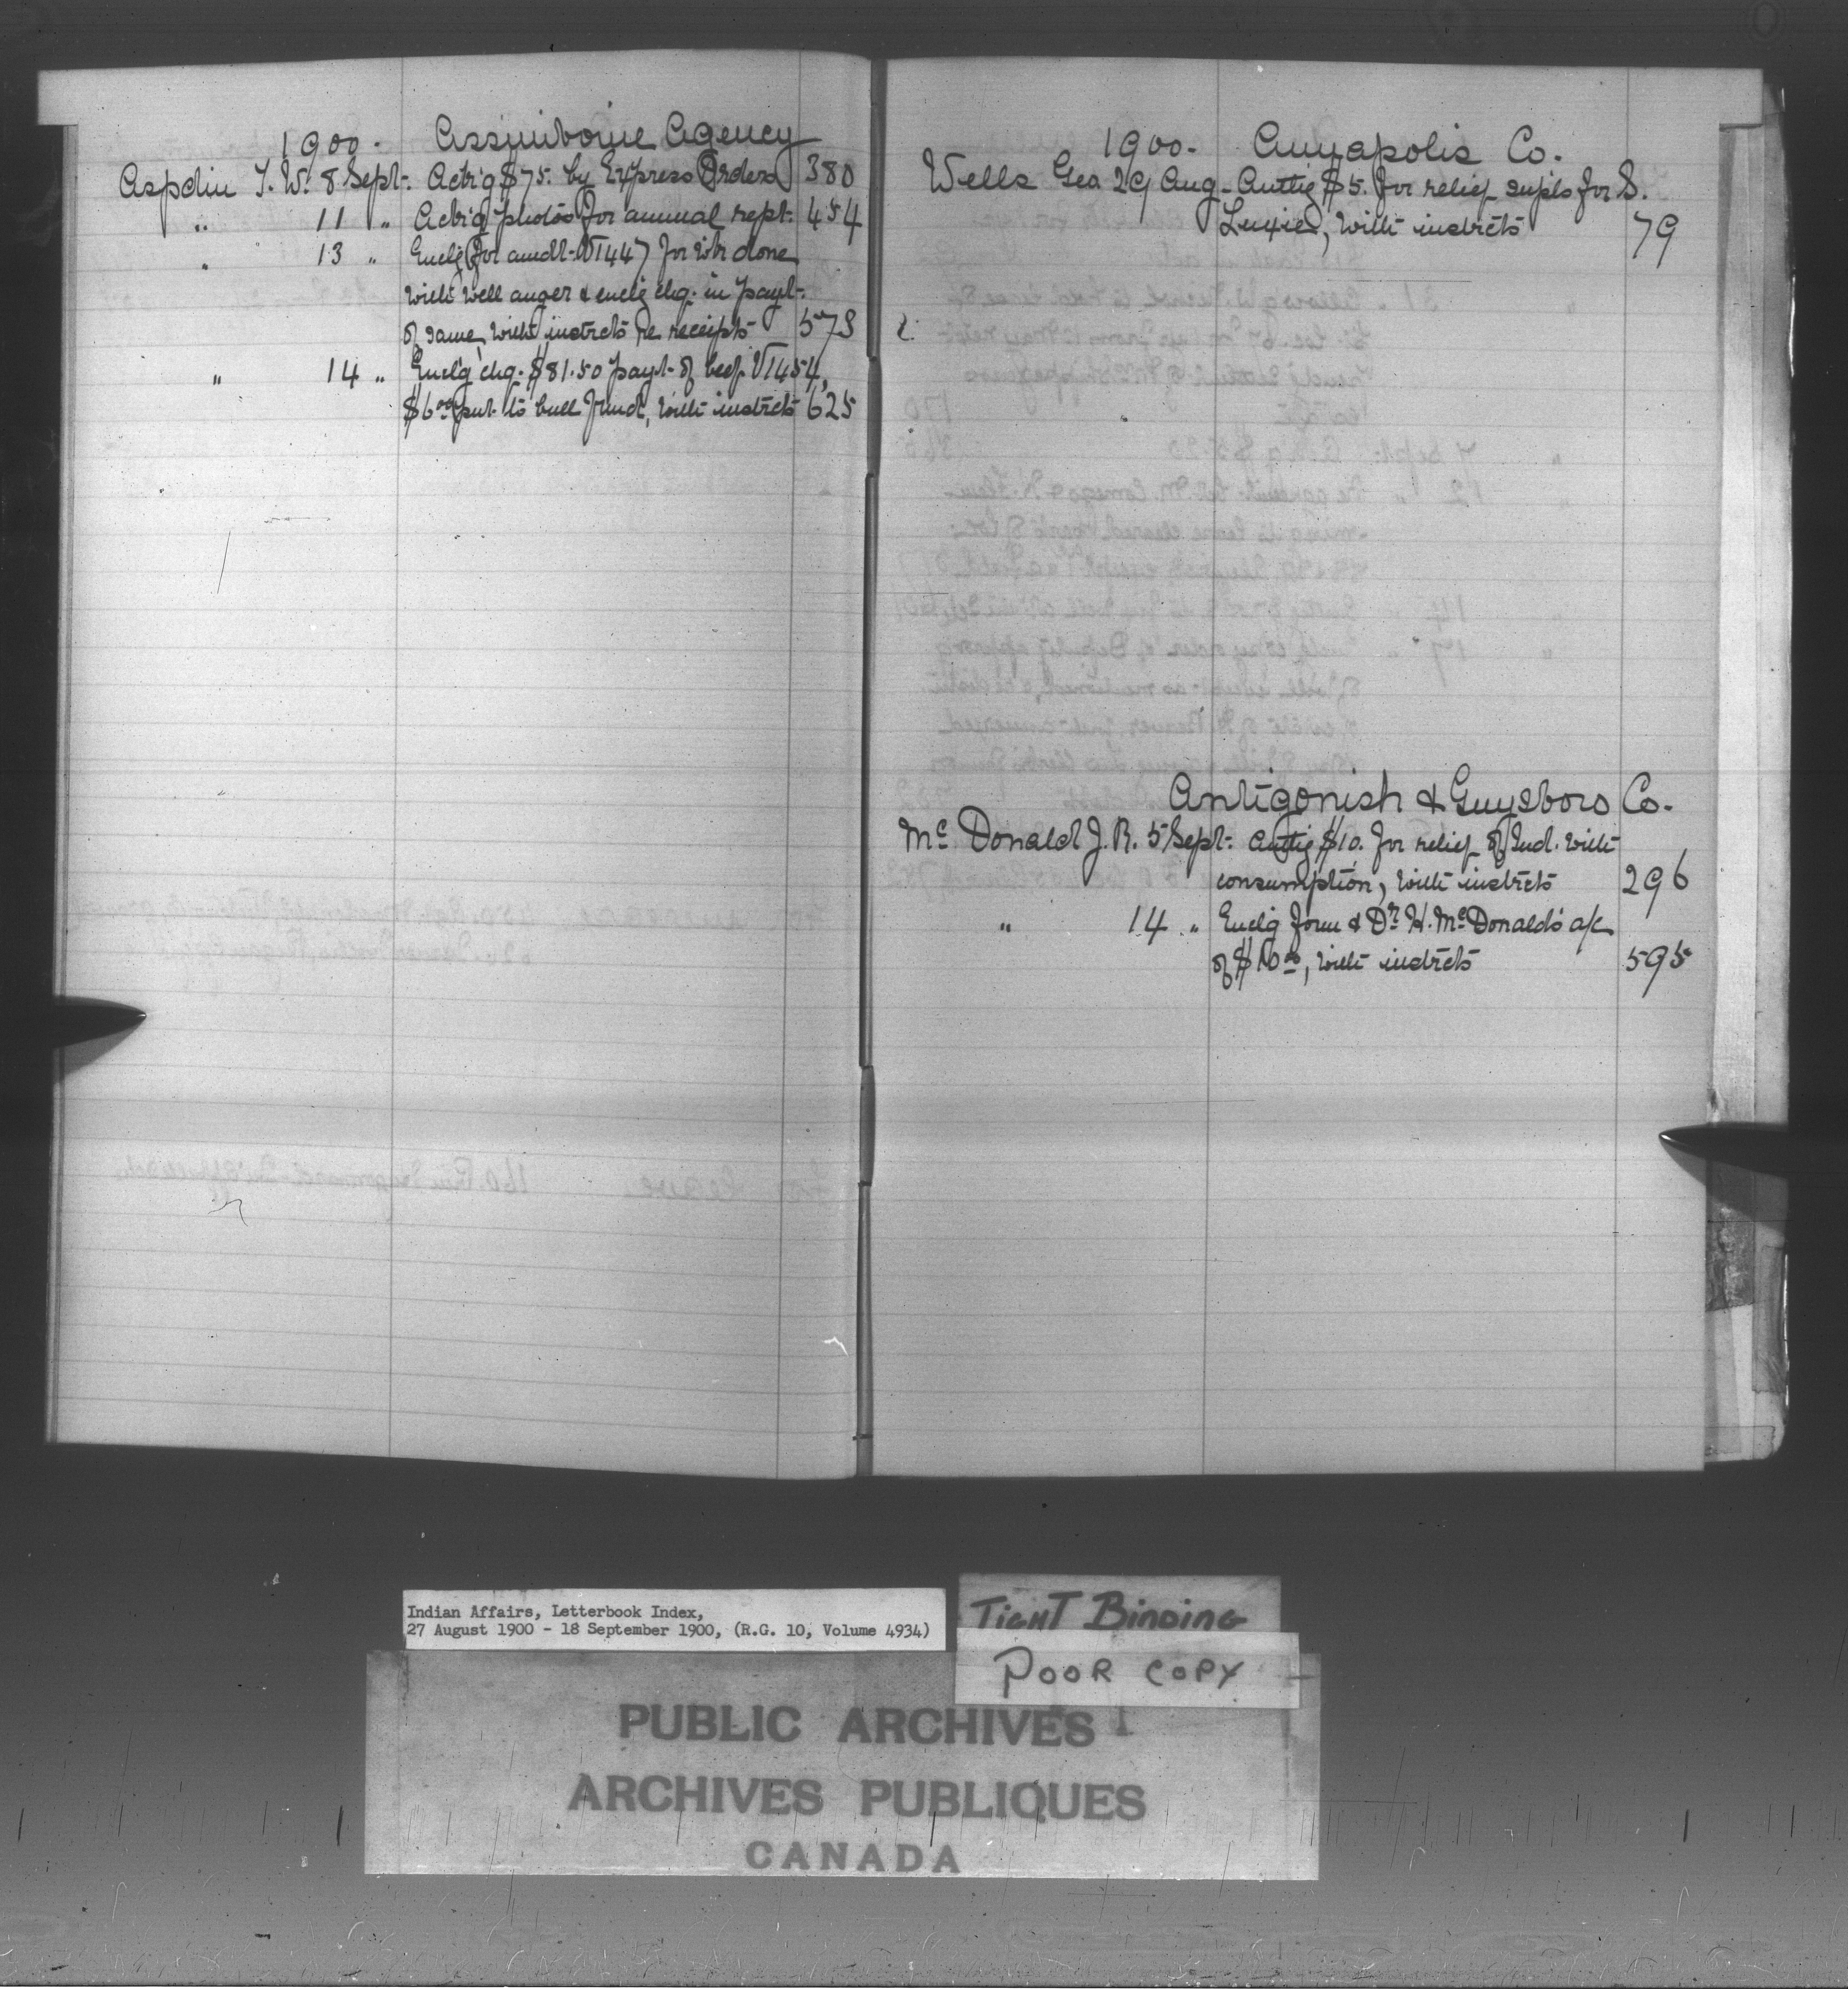 1900. Assiniboine Agency
Aspdin T. W. 8 Sept. Actg'g $75. by Express Orders 380
" 11 " Actg'g photos for annual rept. 454
" 13 " Enclg for amdt. V1447 for wk done
with well auger & enclg chq. in payt.
of same, with instrcts re receipts 573
" 14 " Encl'g chq. $81.50 payt. of beef V1454,
$6.00 put to bull fund, with instrcts 625
1900. Annapolis Co.
Wells Geo 29 Aug. Authg $5. for relief suppls for S.
with instrcts 79
Antigonish & Guysboro Co.
McDonald J. R. 5 Sept. Authg $10. for relief of Ind. with
consumption, with instrcts 296
" 14 " Encl'g form & Dr. H. McDonald's a/c
of $10.00, with instrcts 595
Indian Affairs, Letterbook Index,
27 August 1900 - 18 September 1900, (R.G. 10, Volume 4934)
TIGHT BINDING
POOR COPY
PUBLIC ARCHIVES
ARCHIVES PUBLIQUES
CANADA